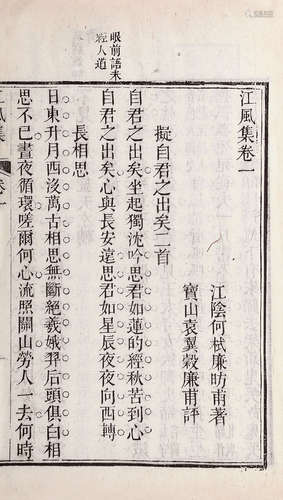 江風集卷一
江陰何栻廉昉甫著
寶山袁翼穀廉甫評
擬自君之出矣二首
自君之出矣坐起獨沈吟思君如蓮的經秋苦到心
自君之出矣心與長安遠思君如星辰夜夜向西轉
眼前語未
經人道
長相思
日東升月西沒萬古相思無斷絕羲娥羿后頭俱白相
思不已晝夜循環嗟爾何心流照關山勞人一去何時
江風集
卷一